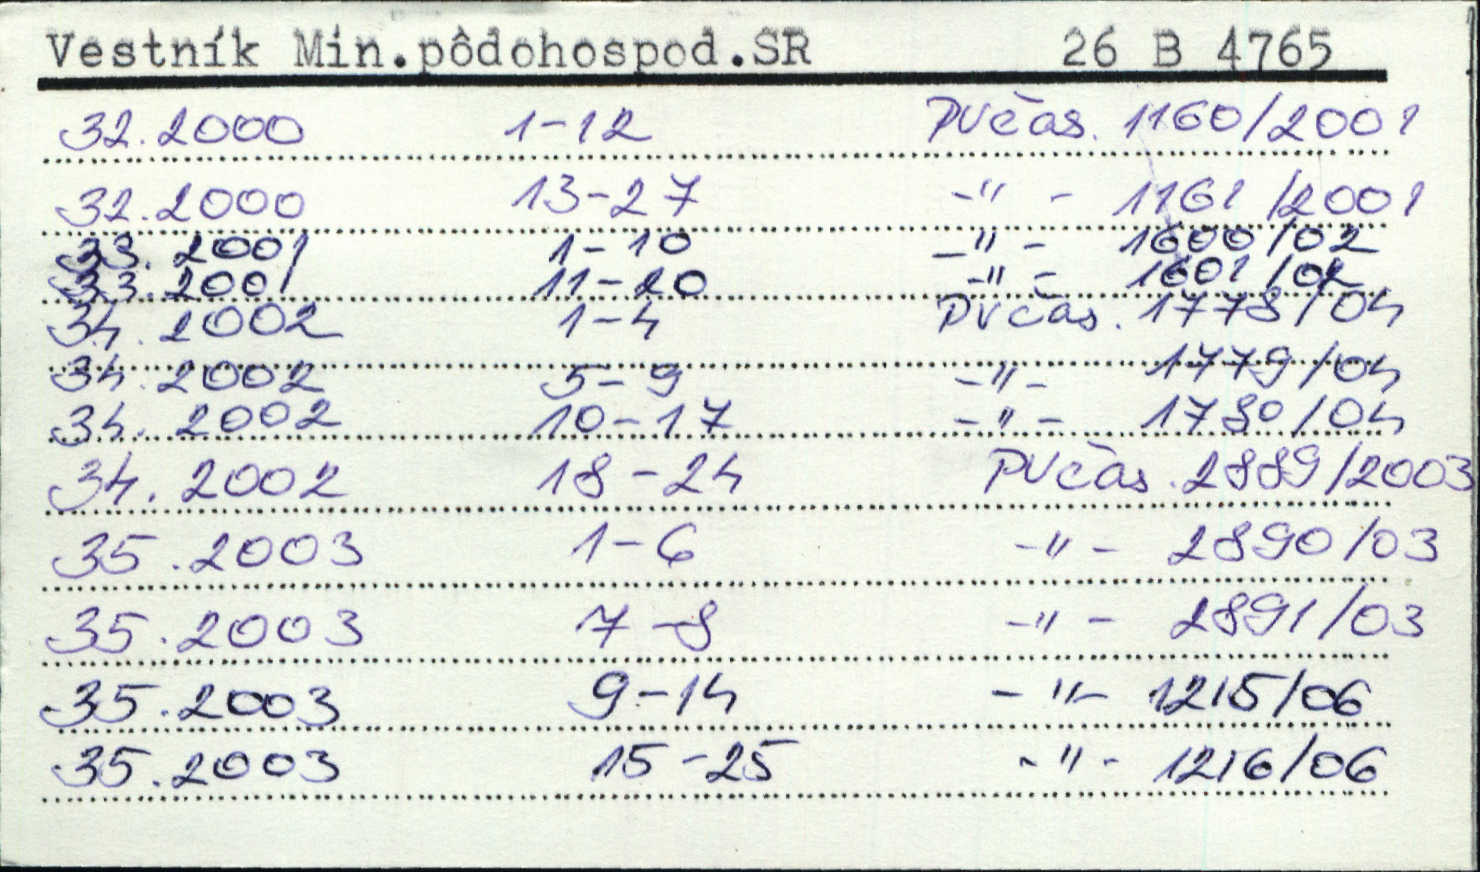 Vestník Min.pôdohospod.SR 26 B 4765
32.2000 1-12 PVčas. 1160/2001
32.2000 13-27 -"- 1161/2001
33.2001 1-10 -"- 1600/02
33.2001 11-20 -"- 1601/02
34.2002 1-4 PVčas. 1778/04
34.2002 5-9 -"- 1779/04
34.2002 10-17 -"- 1780/04
34.2002 18-24 PVčas. 2889/2003
35.2003 1-6 -"- 2890/03
35.2003 7-8 -"- 2891/03
35.2003 9-14 -"- 1215/06
35.2003 15-25 -"- 1216/06